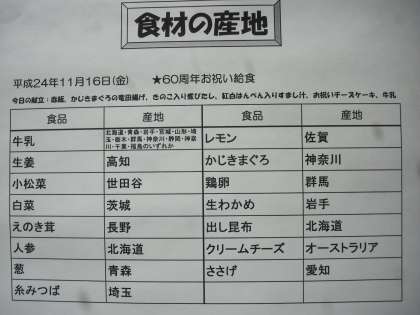 食材の産地
平成24年11月16日(金) ★60周年お祝い給食
今日の献立：赤飯、かじきまぐろの竜田揚げ、きのこ入り煮びたし、紅白はんぺん入りすまし汁、お祝いチーズケーキ、牛乳
食品 産地 食品 産地
牛乳 北海道・青森・岩手・宮城・山形・埼玉・栃木・群馬・神奈川・静岡・神奈川・千葉・福島のいずれか レモン 佐賀
生姜 高知 かじきまぐろ 神奈川
小松菜 世田谷 鶏卵 群馬
白菜 茨城 生わかめ 岩手
えのき茸 長野 出し昆布 北海道
人参 北海道 クリームチーズ オーストラリア
葱 青森 ささげ 愛知
糸みつば 埼玉